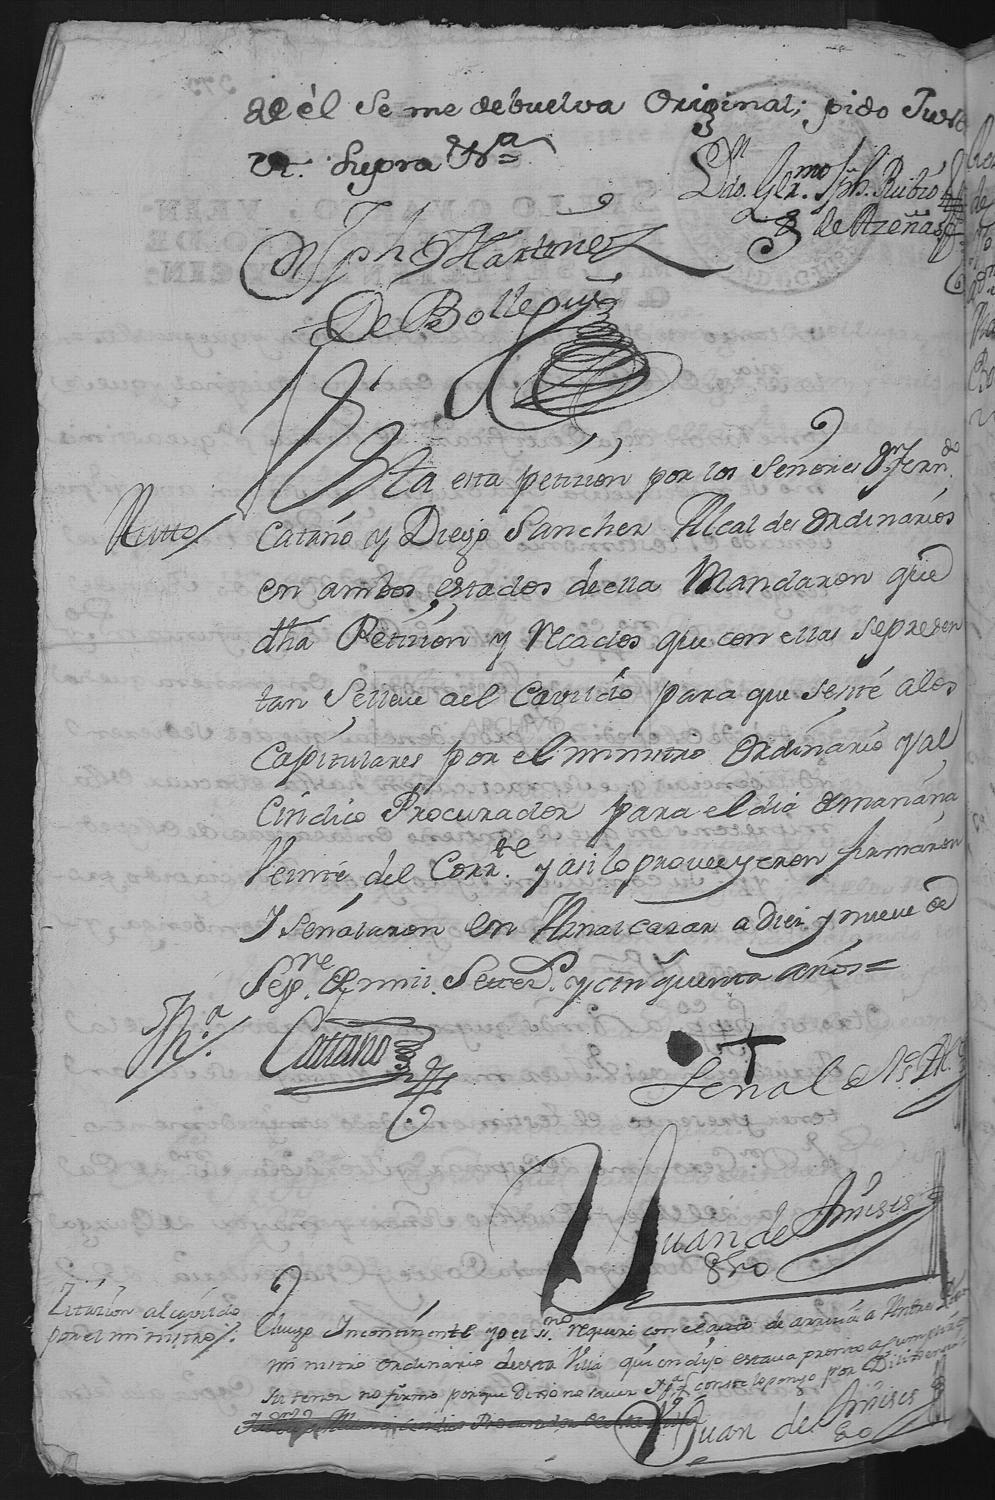 de èl Se me debuelva Original; pido Just
ut supra &ra=
Ldo. Germo. Jph. Rubio
de Azeñas
Jph Martinez
De Bollequi
Vista esta petizion por los Señores Dn. Ferndo.
Autto
Cataño y Diego Sanchez Alcaldes ordinarios
en ambos estados de ella Mandaron que
dha Petizion y Recados que con ellas se presen
tan se lleve ael Cavildo para que se zite alos
Capitulares por el ministro ordinario y al
Cindico Procurador para el dia de mañana
Veinte del Corrte. y asi lo proveeyeron firmaron
y Señalaron en Aznalcazar a Diez y nueve de
Sepre. de mil Settezs. y cinquenta años=
Cattaño
Señal
Juan de
Essno
Zitazion al cavildo
por el ministro
Luego Incontinente yo el ssno. requeri con el auto de arriva a
ministro ordinario de esta Villa quien dijo estava pronto a cumplir
su tenor no firmo porque dijo no saver
Juan de